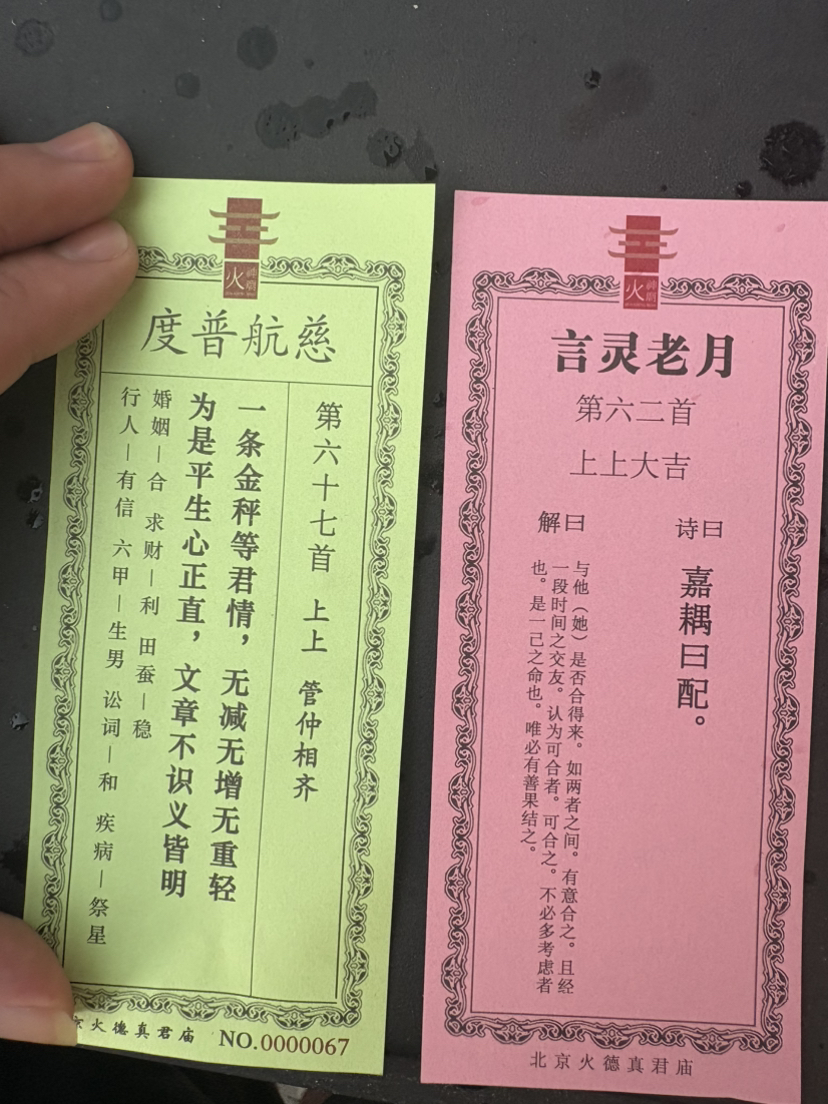 火
神庙
慈航普度
第六十七首 上上 管仲相齐
一条金秤等君情，无减无增无重轻
为是平生心正直，文章不识义皆明
婚姻—合 求财—利 田蚕—稳
行人—有信 六甲—生男 讼词—和 疾病—祭星
京火德真君庙
NO.0000067
火
神庙
月老灵言
第六二首
上上大吉
诗曰
嘉耦曰配。
解曰
与他（她）是否合得来。如两者之间。有意合之。且经
一段时间之交友。认为可合者。可合之。不必多考虑者
也。是一己之命也。唯必有善果结之。
北京火德真君庙